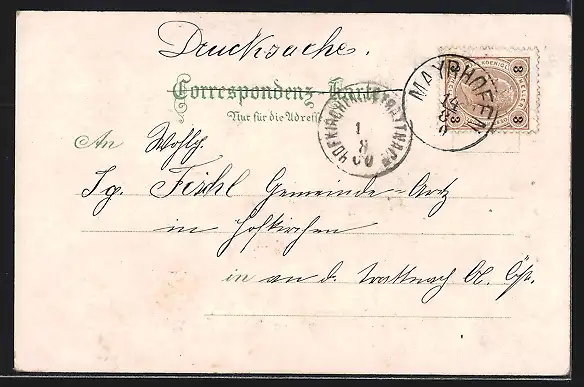 Drucksache.
Correspondenz-Karte
Nur für die Adresse
An Wohlg.
Sg. Fischl Gemeinde-Arzt
in Hofkirchen
in an d. Trattnach Ob. Öst.
MAYRHOFEN
19
8
3
3
HOFKIRCHEN A.D. TRATTNACH
1
8
00